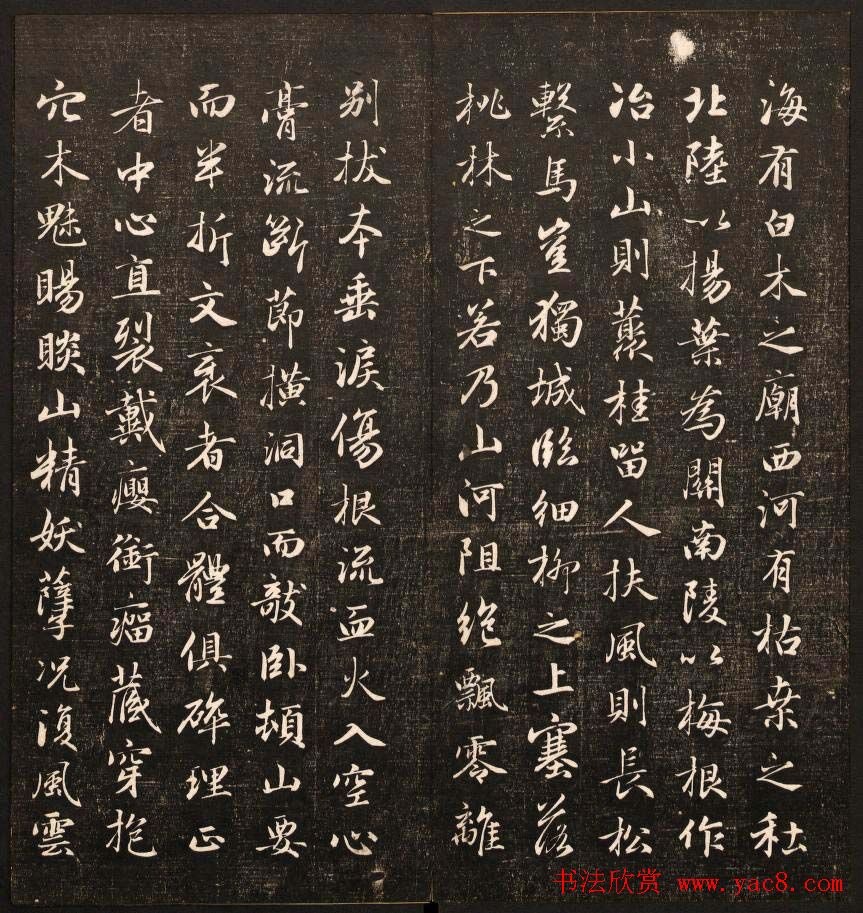 海有白木之廟西河有枯桒之社
北陸以揚葉為關南陵以梅根作
冶小山則藂桂留人扶風則長松
繫馬豈獨城臨細柳之上塞落
桃林之下若乃山河阻絕飄零離
別拔本垂淚傷根流血火入空心
膏流斷節橫洞口而敧臥頓山要
而半折文衺者合體俱碎理正
者中心直裂戴癭銜瘤藏穿抱
穴木魅睗睒山精妖孽况復風雲
书法欣赏 www.yac8.com